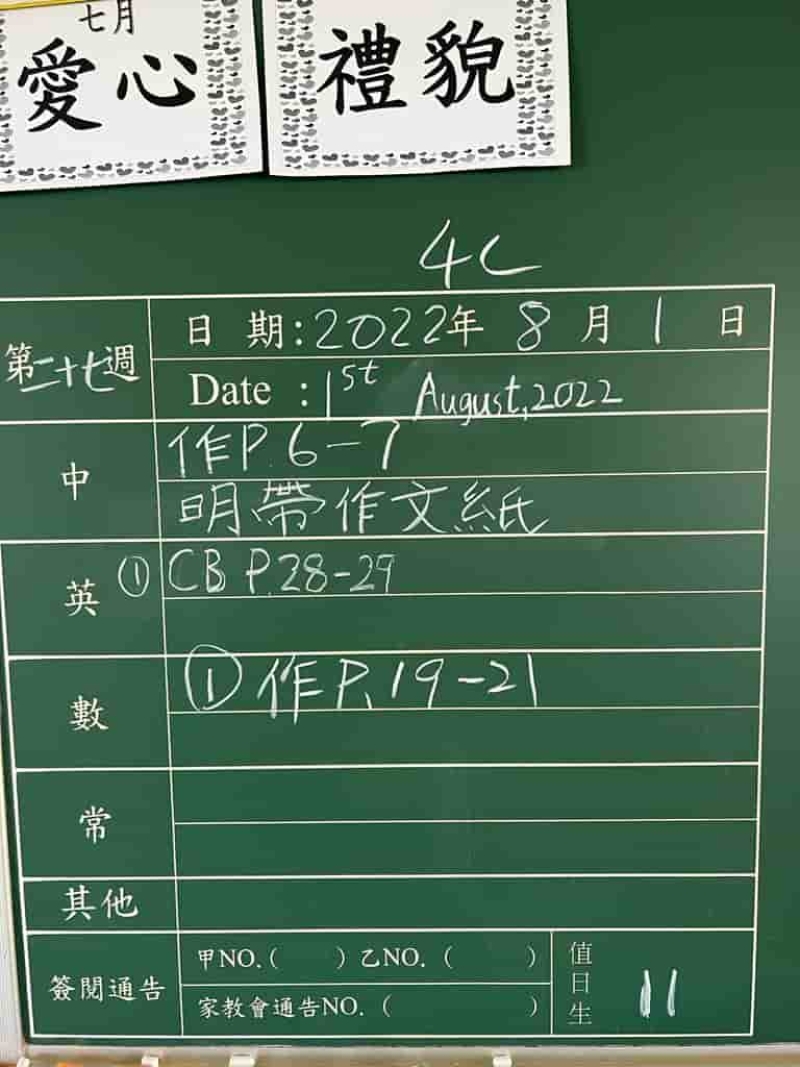 七月
愛心
禮貌
4C
第二十七週
日 期:2022年 8 月 1 日
Date : 1st August, 2022
中
作P.6-7
明帶作文紙
英
① CB P.28-29
數
① 作P.19-21
常
其他
簽閱通告
甲NO.( ) 乙NO. ( )
家教會通告NO. ( )
值日生
11